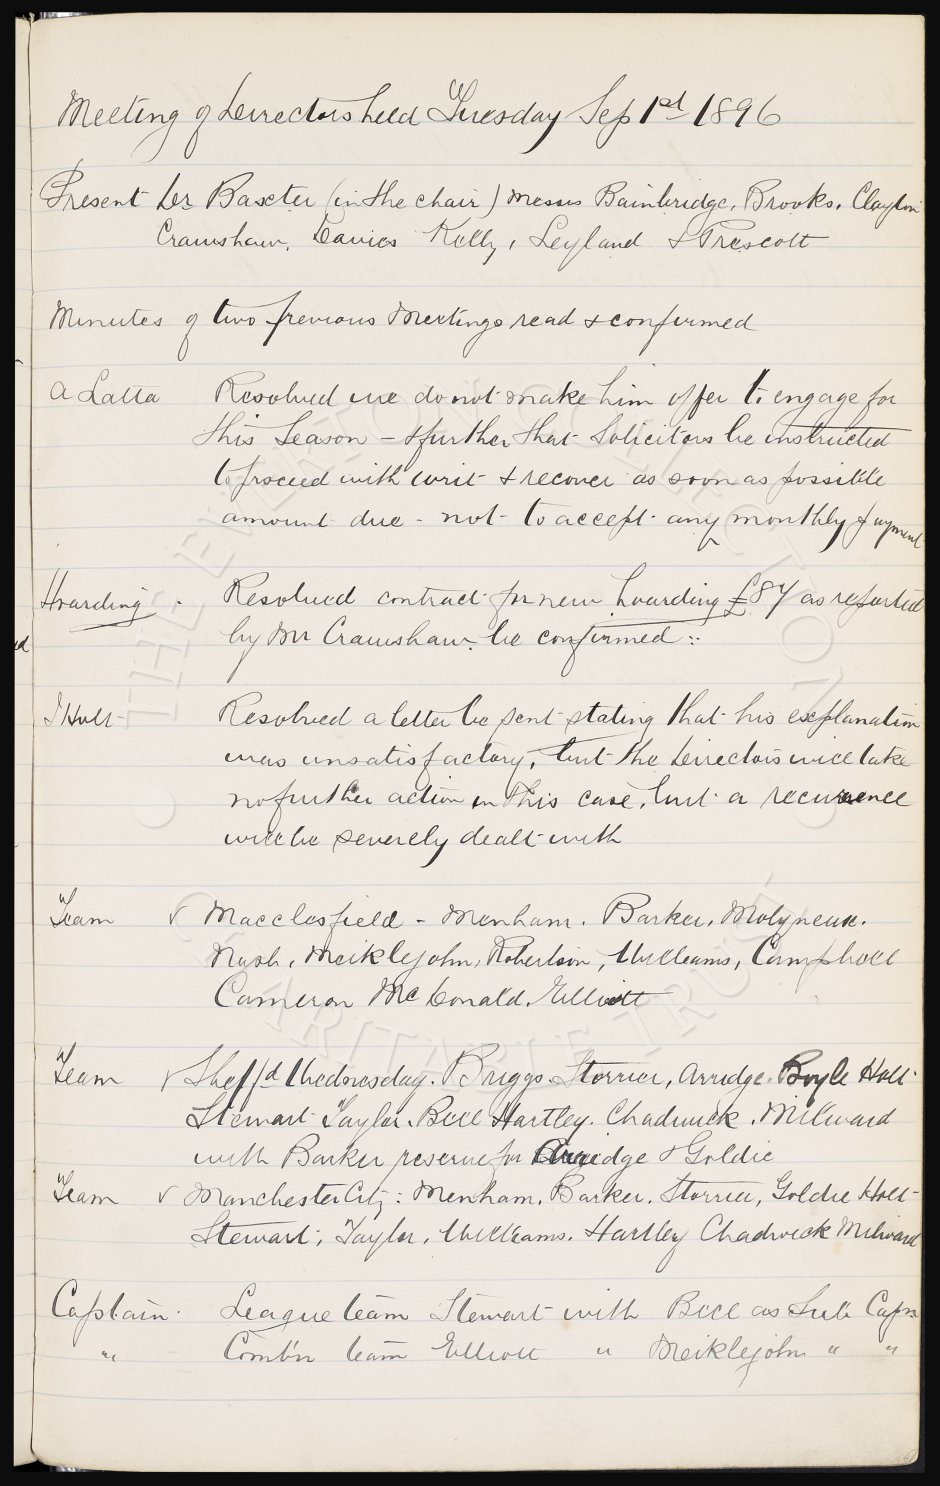 Meeting of Directors held Tuesday Sep 1st 1896
Present Dr Baxter (in the chair) Messrs Bainbridge, Brooks, Clayton
Crawshaw, Davies Kelly, Leyland & Prescott
Minutes of two previous Meetings read & confirmed
A Latta Resolved we do not make him offer to engage for
this Season - & further that Solicitors be instructed
to proceed with writ & recover as soon as possible
amount due - not to accept any monthly payment
Hoarding. Resolved contract for new hoarding £84 as reported
by Mr Crawshaw be confirmed :
J Holt Resolved a letter be sent stating that his explanation
was unsatisfactory, but the Directors will take
no further action in this case, but a recurrence
will be severely dealt with
Team v Macclesfield - Menham. Barker, Molyneux.
Nash, Meiklejohn, Robertson, Williams, Campbell
Cameron McDonald. Elliott
Team v Sheffd Wednesday. Briggs. Storrier, Arridge. Boyle Holt
Stewart Taylor. Bell Hartley. Chadwick. Milward
with Barker reserve for Arridge & Goldie
Team v Manchester City: Menham. Barker. Storrier, Goldie Holt
Stewart, Taylor. Williams. Hartley Chadwick Milward
Captain. League team Stewart with Bell as Sub Capn
" Comb'n team Elliott " Meiklejohn " "
THE EVERTON COLLECTION
CHARITABLE TRUST